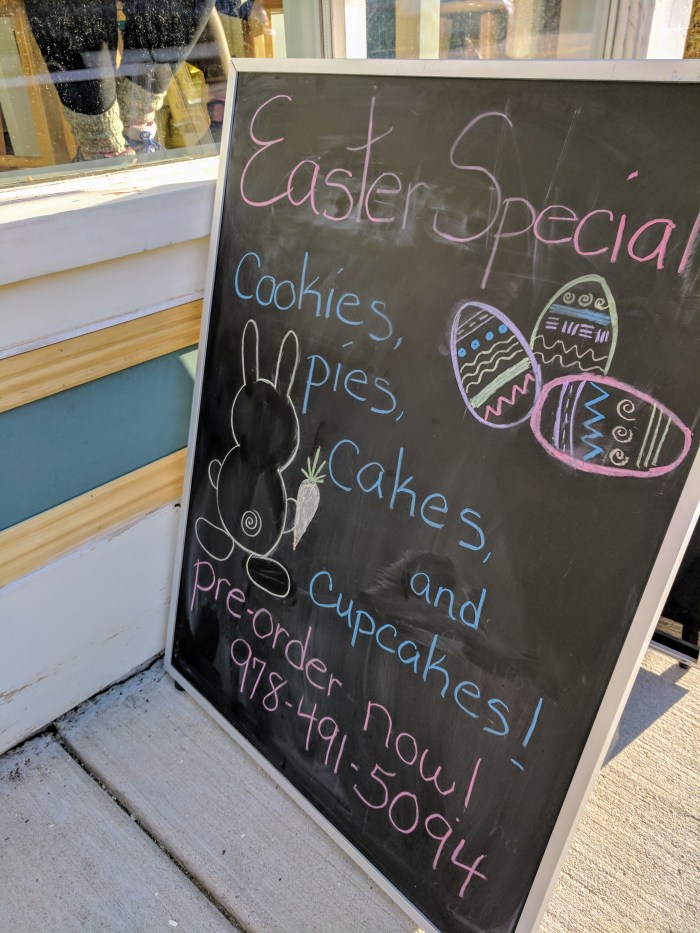 Easter Special
Cookies,
pies,
Cakes,
and
cupcakes!
pre-order now!
978-491-5094